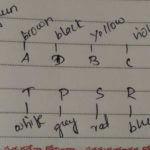 brown black yellow
A D B C
T P S R
white grey red blue